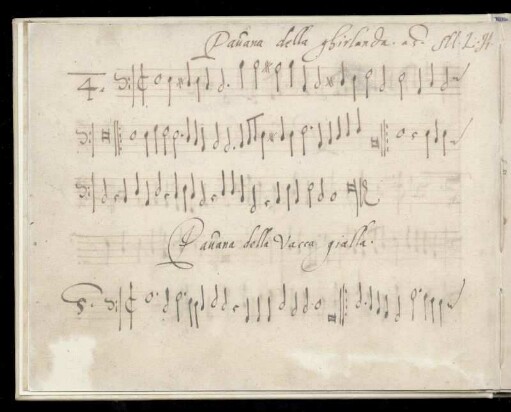 Pavana della ghirlanda. a 5. M. L. H.
4.
Pavana della Vacca gialla.
5.